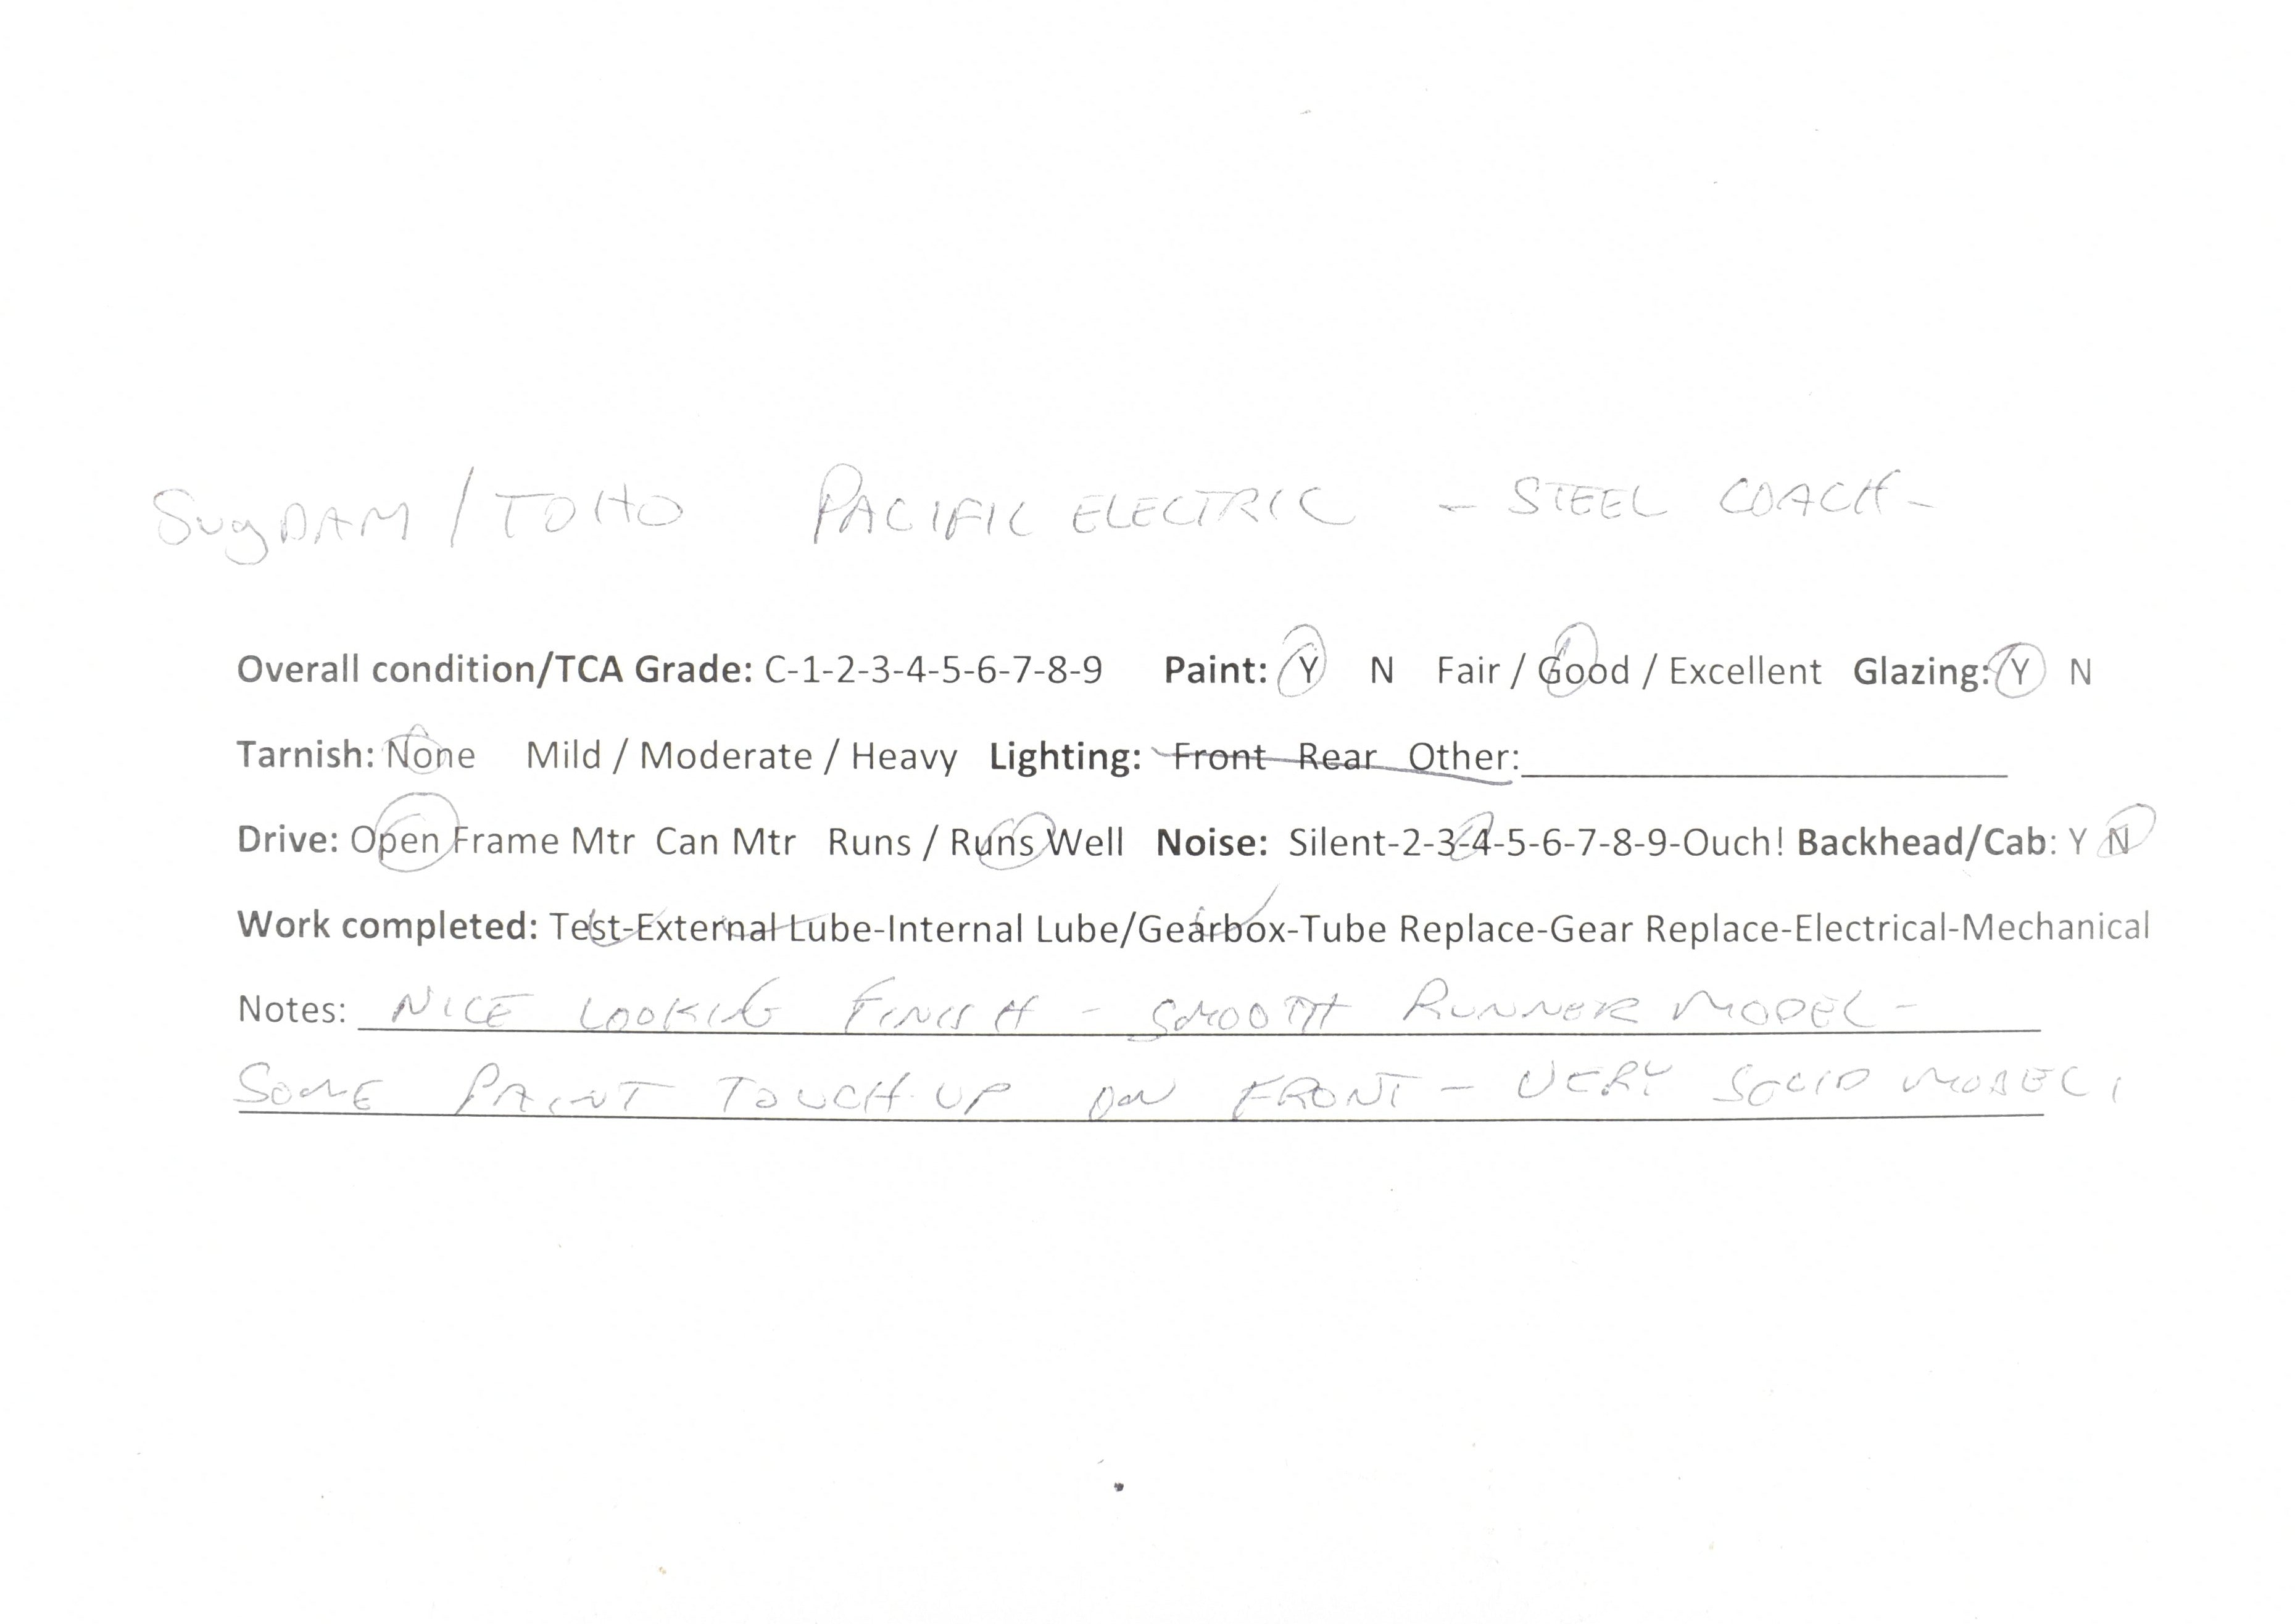 SugDAM / TOHO PACIFIC ELECTRIC - STEEL COACH -
Overall condition/TCA Grade: C-1-2-3-4-5-6-7-8-9 Paint: Y N Fair / Good / Excellent Glazing: Y N
Tarnish: None Mild / Moderate / Heavy Lighting: Front Rear Other:
Drive: Open Frame Mtr Can Mtr Runs / Runs Well Noise: Silent-2-3-4-5-6-7-8-9-Ouch! Backhead/Cab: Y N
Work completed: Test-External Lube-Internal Lube/Gearbox-Tube Replace-Gear Replace-Electrical-Mechanical
Notes: NICE LOOKING FINISH - SMOOTH RUNNER MODEL -
SOME PAINT TOUCH-UP ON FRONT - VERY SOLID MODEL!